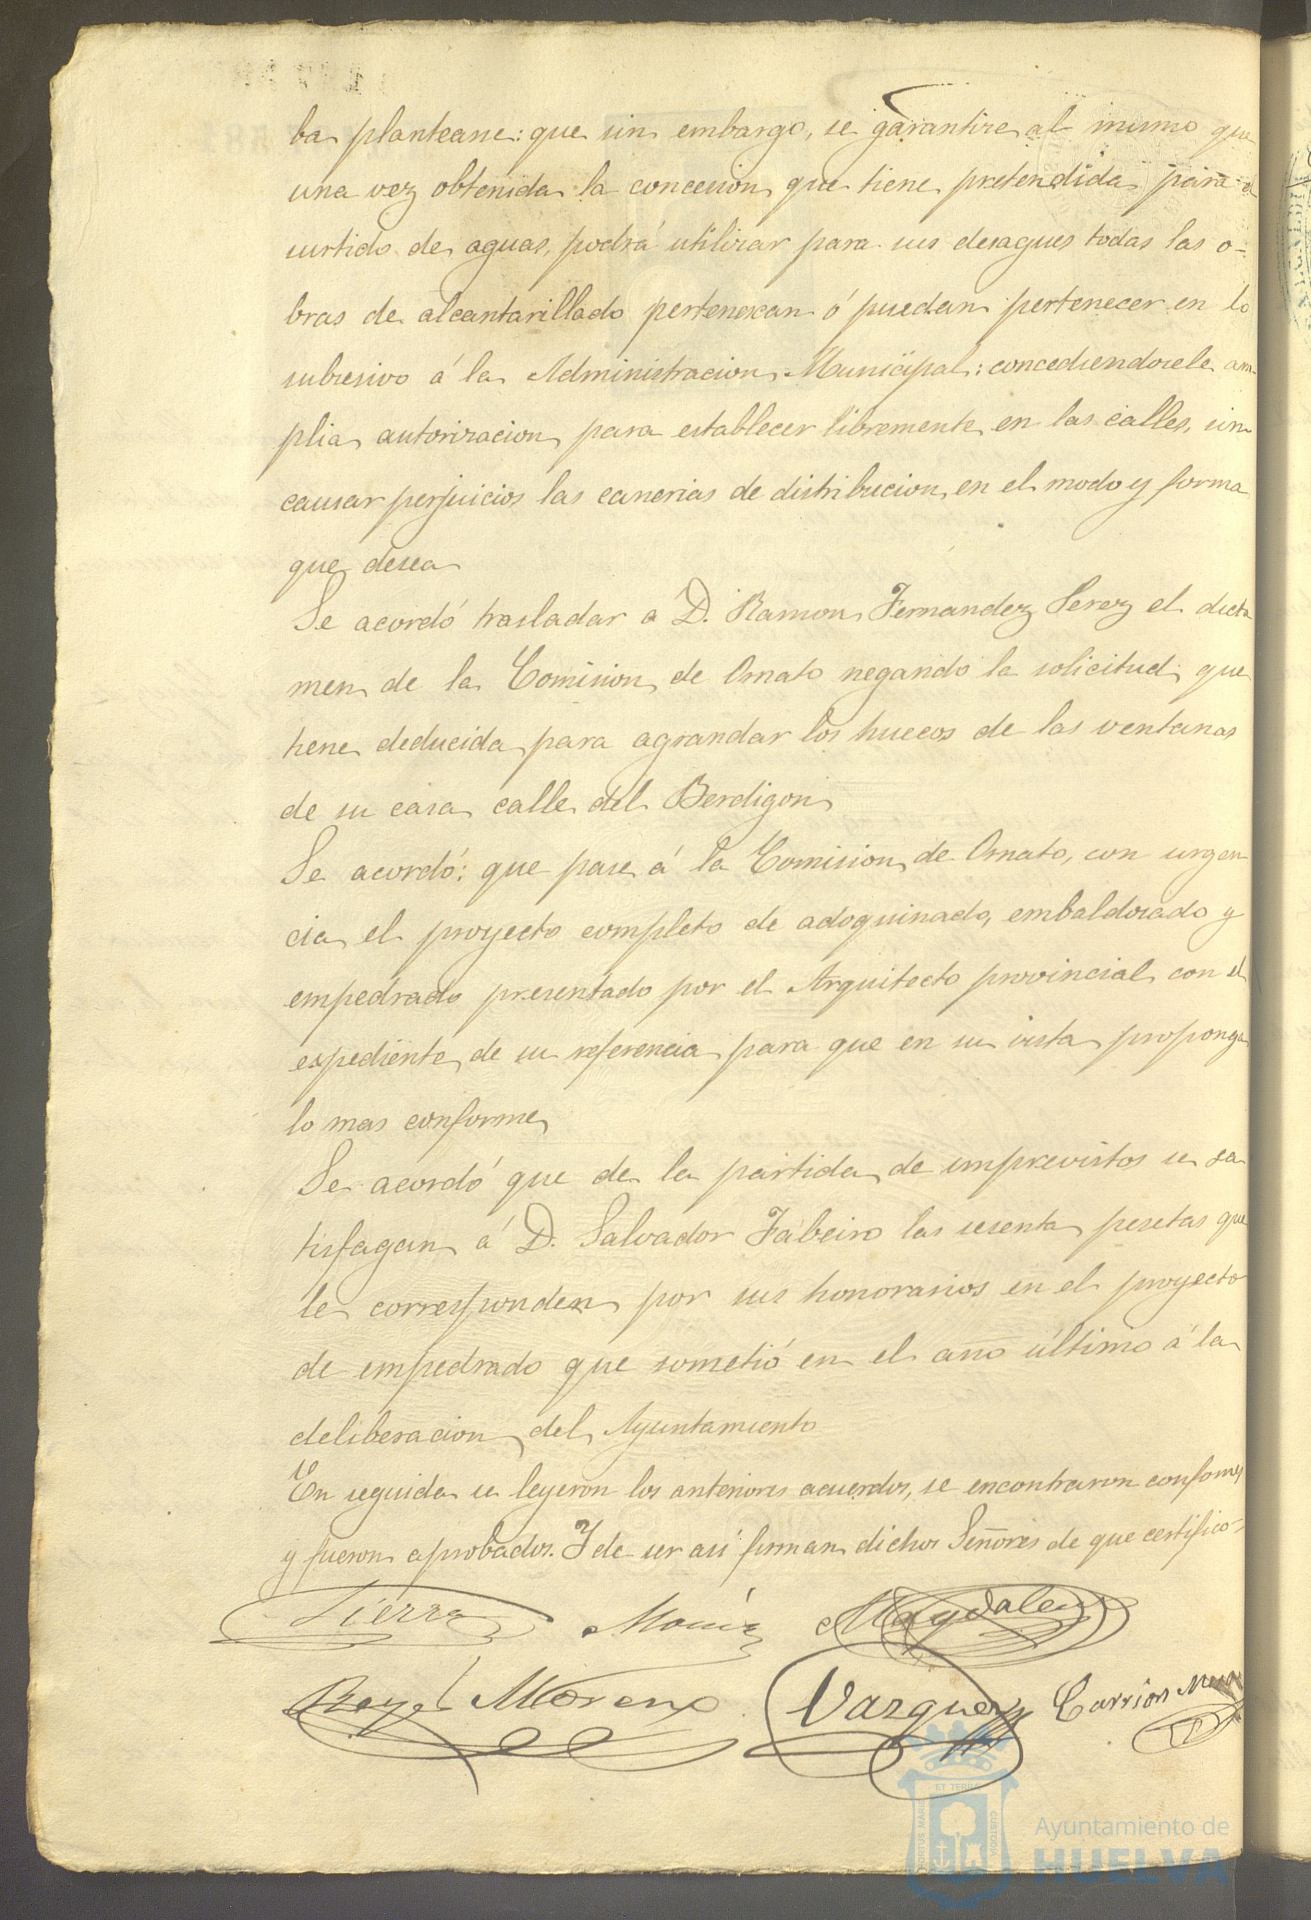 ba plantearse: que sin embargo, se garantize al mismo que
una vez obtenida la concesion que tiene pretendida para el
surtido de aguas, podrá utilizar para sus desagues todas las o-
bras de alcantarillado pertenezcan ó puedan pertenecer en lo
subcesivo á la Administracion Municipal: concediendosele am-
plia autorizacion para establecer libremente en las calles, sin
causar perjuicios las cañerias de distribucion en el modo y forma
que desea
Se acordó trasladar a D. Ramon Fernandez Perez el dicta
men de la Comision de Ornato negando la solicitud que
tiene deducida para agrandar los huecos de las ventanas
de su casa calle del Berdigon
Se acordó: que pase á la Comision de Ornato, con urgen
cia el proyecto completo de adoquinado, embaldosado y
empedrado presentado por el Arquitecto provincial con el
expediente de su referencia para que en su vista proponga
lo mas conforme
Se acordó que de la partida de imprevistos se sa
tisfagan á D. Salvador Fabeiro las sesenta pesetas que
le corresponden por sus honorarios en el proyecto
de empedrado que sometió en el año último á la
deliberacion del Ayuntamiento
En seguida se leyeron los anteriores acuerdos, se encontraron conformes
y fueron aprobados. Y de ser asi firman dichos Señores de que certifico
Tierra Macías Magdalena
Rey Moreno Vazquez Carrion
Ayuntamiento de
HUELVA